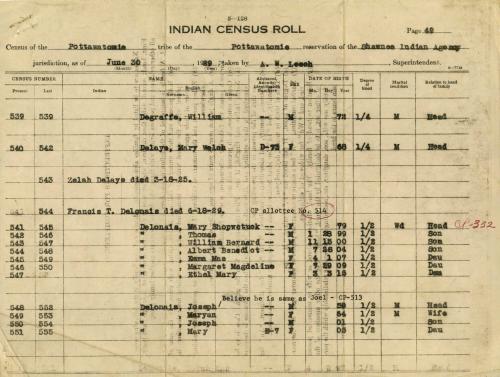 5-128
INDIAN CENSUS ROLL
Page 42
Census of the Pottawatomie tribe of the Pottawatomie reservation of the Shawnee Indian Agency
jurisdiction, as of June 30, 1929 taken by A. W. Leech, Superintendent.
CENSUS NUMBER NAME SEX DATE OF BIRTH Degree of blood Marital condition Relation to head of family
Present Last Indian English Mo. Day Year
539 539 Degraffe, William -- M 72 1/4 M Head
540 542 Delays, Mary Welch D-73 F 68 1/4 M Head
543 Zelah Delays died 3-18-25.
544 Francis T. Delonais died 6-18-29. CP allottee No. 514
541 545 Delonais, Mary Shopwetuck -- F 79 1/2 Wd Head CP-352
542 546 " Thomas -- M 1 28 99 1/2 Son
543 547 " William Bernard -- M 11 15 00 1/2 Son
544 548 " Albert Benedict -- M 7 28 04 1/2 Son
545 549 " Emma Mae -- F 4 1 07 1/2 Dau
546 550 " Margaret Magdeline -- F 7 29 09 1/2 Dau
547 " Ethel Mary -- F 3 3 1/2 Dau
Believe he is same as Joel - CP-513
548 552 Delonais, Joseph -- M 59 1/2 M Head
549 553 " Maryan -- F 64 1/2 M Wife
550 554 " Joseph -- M 01 1/2 Son
551 555 " Mary B-7 F 03 1/2 Dau